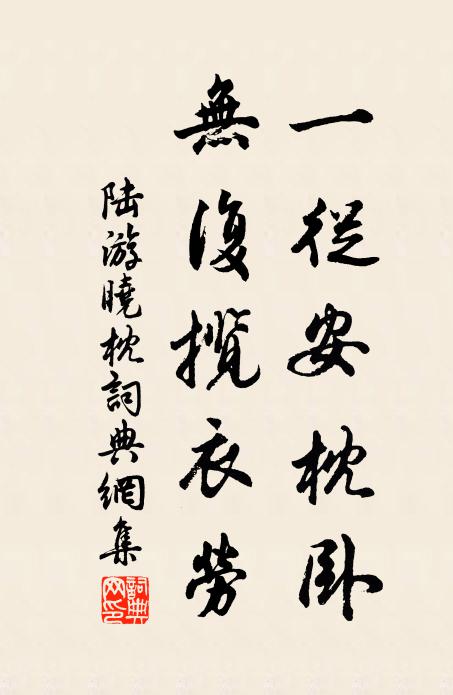 一從安枕臥
無復攬衣勞
陆游曉枕詞典網集